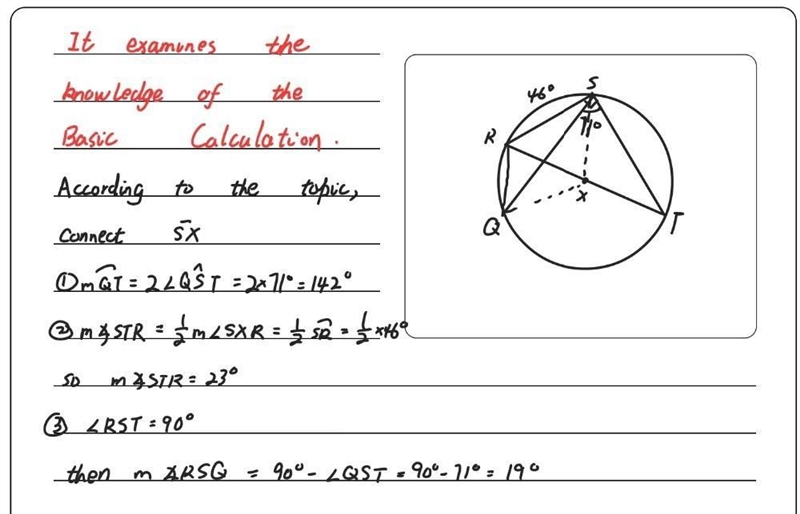 It examines the
knowledge of the
Basic Calculation.
According to the topic,
Connect S̄X
① m Q͡T = 2∠QŜT = 2×71° = 142°
② m∡STR = 1/2 m∠SXR = 1/2 S͡R = 1/2 ×46°
so m∡STR = 23°
③ ∠RST = 90°
then m∡RSQ = 90° - ∠QST = 90° - 71° = 19°
S
46°
71°
R
X
Q
T